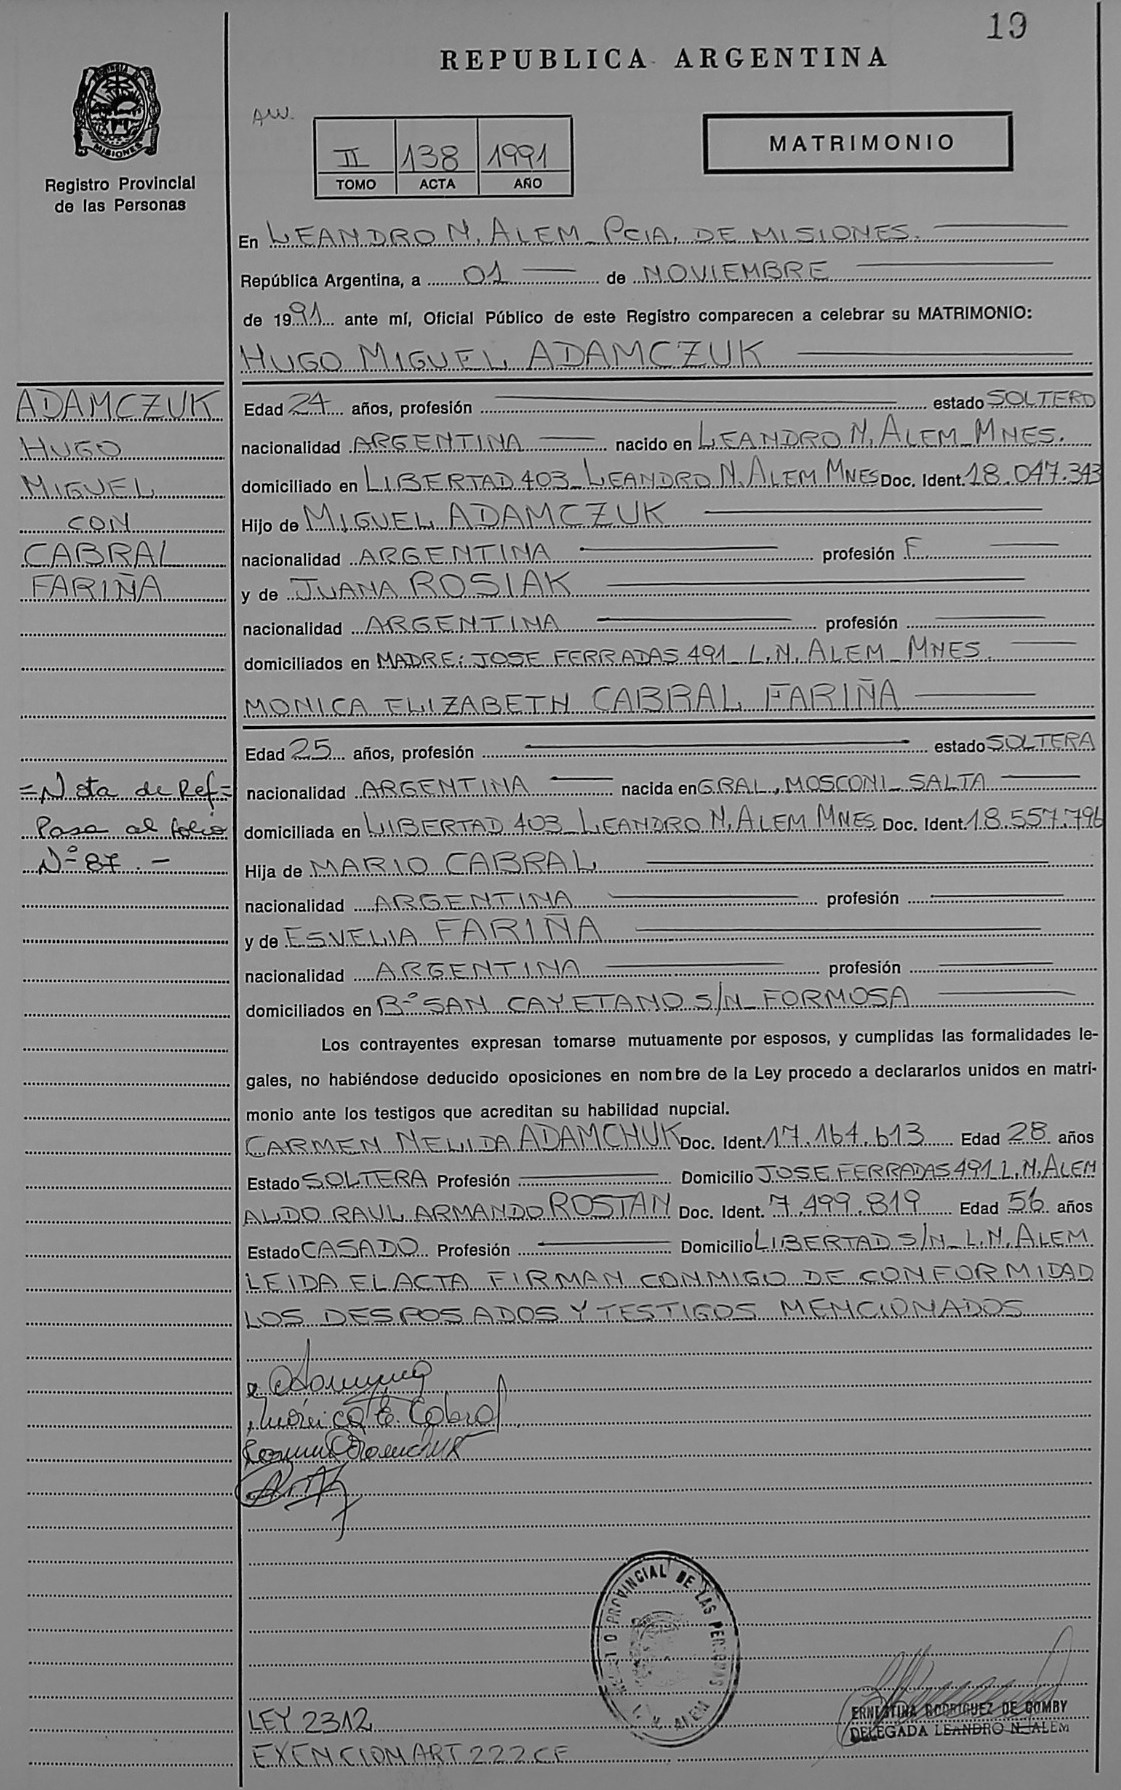 19
REPUBLICA ARGENTINA
MISIONES
Registro Provincial
de las Personas
II 138 1991
TOMO ACTA AÑO
MATRIMONIO
En LEANDRO N. ALEM_PCIA. DE MISIONES.
República Argentina, a 01 de NOVIEMBRE
de 1991 ante mí, Oficial Público de este Registro comparecen a celebrar su MATRIMONIO:
HUGO MIGUEL ADAMCZUK
ADAMCZUK
HUGO
MIGUEL
CON
CABRAL
FARIÑA
Edad 24 años, profesión estado SOLTERO
nacionalidad ARGENTINA nacido en LEANDRO N. ALEM_MNES.
domiciliado en LIBERTAD 403_LEANDRO N. ALEM MNES Doc. Ident. 18.047.343
Hijo de MIGUEL ADAMCZUK
nacionalidad ARGENTINA profesión F.
y de JUANA ROSIAK
nacionalidad ARGENTINA profesión
domiciliados en MADRE: JOSE FERRADAS 491_L.N. ALEM_MNES.
MONICA ELIZABETH CABRAL FARIÑA
=Nota de Ref=
Pasa al folio
Nº 87.-
Edad 25 años, profesión estado SOLTERA
nacionalidad ARGENTINA nacida en GRAL. MOSCONI_SALTA
domiciliada en LIBERTAD 403_LEANDRO N. ALEM MNES Doc. Ident. 18.557.796
Hija de MARIO CABRAL
nacionalidad ARGENTINA profesión
y de ESVELIA FARIÑA
nacionalidad ARGENTINA profesión
domiciliados en Bº SAN CAYETANO S/N_FORMOSA
Los contrayentes expresan tomarse mutuamente por esposos, y cumplidas las formalidades le-
gales, no habiéndose deducido oposiciones en nombre de la Ley procedo a declararlos unidos en matri-
monio ante los testigos que acreditan su habilidad nupcial.
CARMEN NELIDA ADAMCHUK Doc. Ident. 17.164.613 Edad 28 años
Estado SOLTERA Profesión Domicilio JOSE FERRADAS 491 L.N. ALEM
ALDO RAUL ARMANDO ROSTAN Doc. Ident. 7.499.819 Edad 56 años
Estado CASADO Profesión Domicilio LIBERTAD S/N_L.N. ALEM
LEIDA EL ACTA FIRMAN CONMIGO DE CONFORMIDAD
LOS DESPOSADOS Y TESTIGOS MENCIONADOS
Mónica E. Cabral
PROVINCIAL DE LAS PERSONAS
ALEM
ERNESTINA RODRIGUEZ DE GOMBY
DELEGADA LEANDRO N. ALEM
LEY 2312
EXENCION ART 222 CF